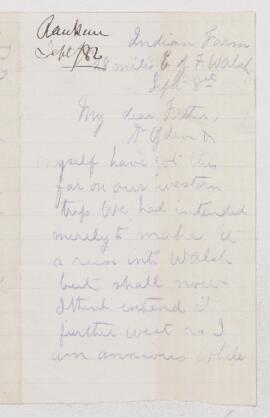 Rankin
Sept /82
Indian Farm
28 miles E of F. Walsh
Sept. 8
My dear Father,
Dr & I
myself have got this
far on our western
trip. We had intended
merely to make it
a run into Walsh
but shall now
I think extend it
further west as I
am anxious while